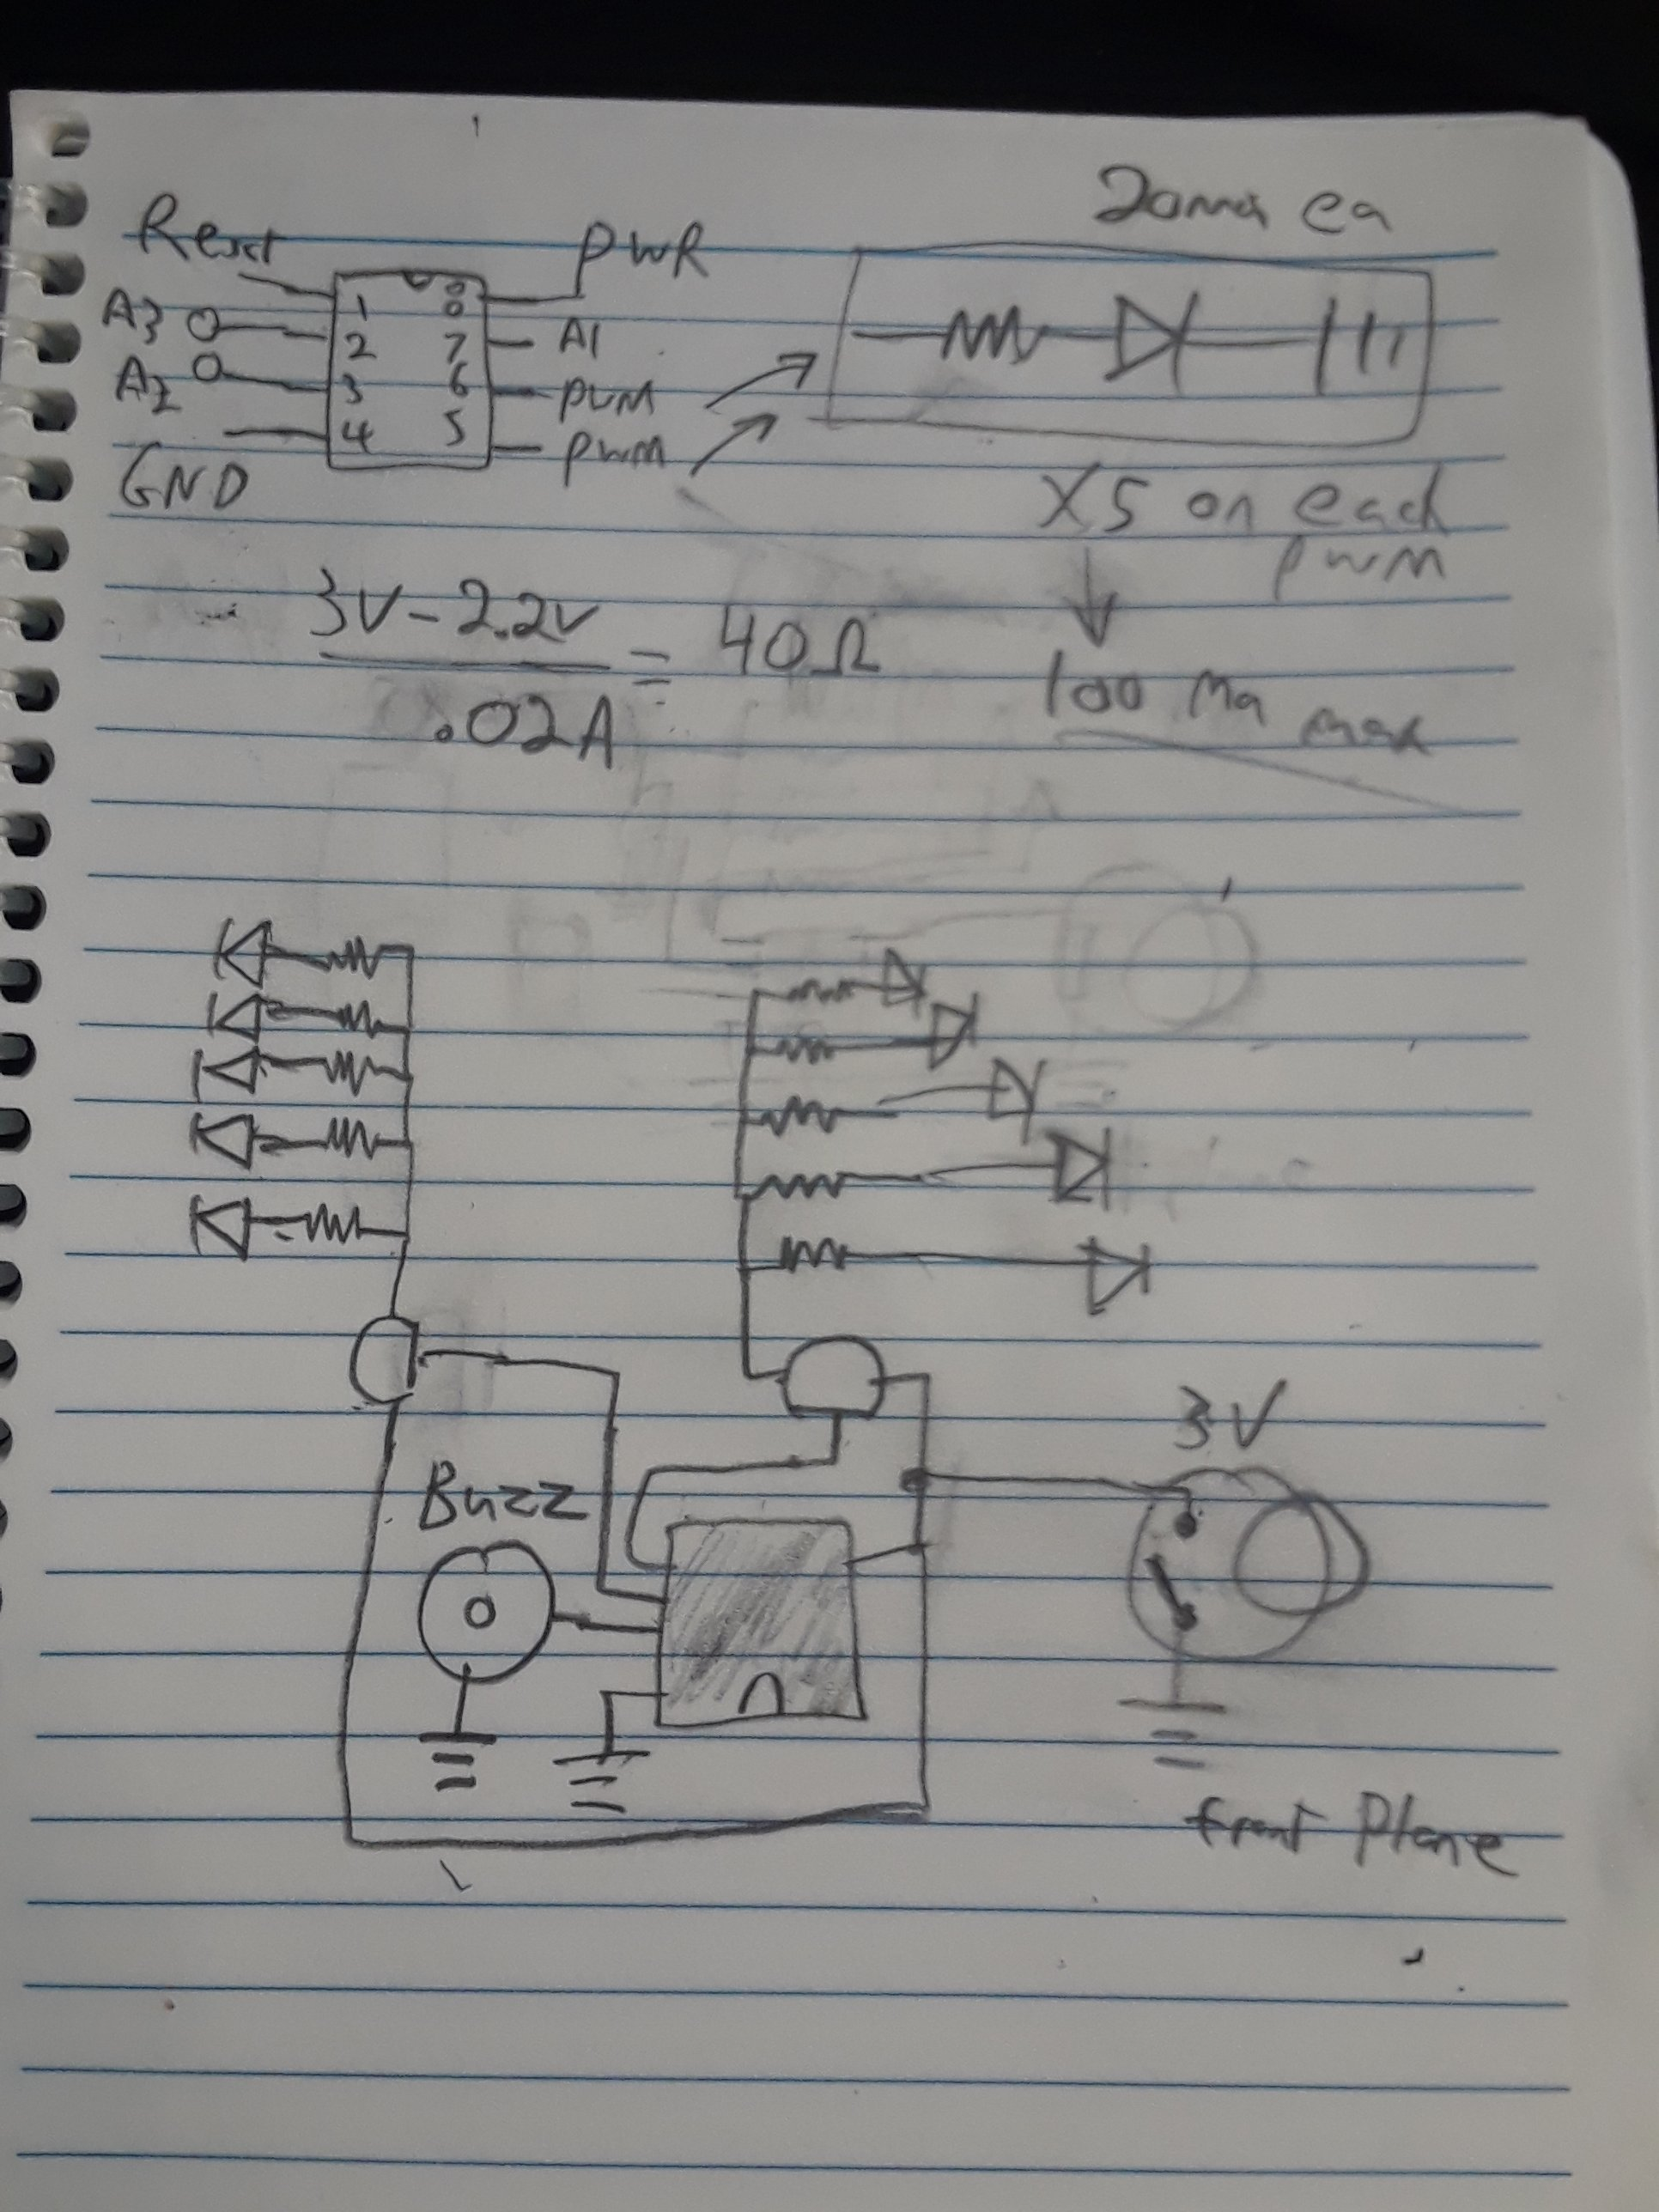 20ma ea
Reset
PWR
A3
1 8
2 7
A1
A2
3 6
PWM
4 5
PWM
GND
X5 on each
PWM
3V-2.2V
= 40Ω
.02A
100 Ma max
3V
Buzz
front Plane